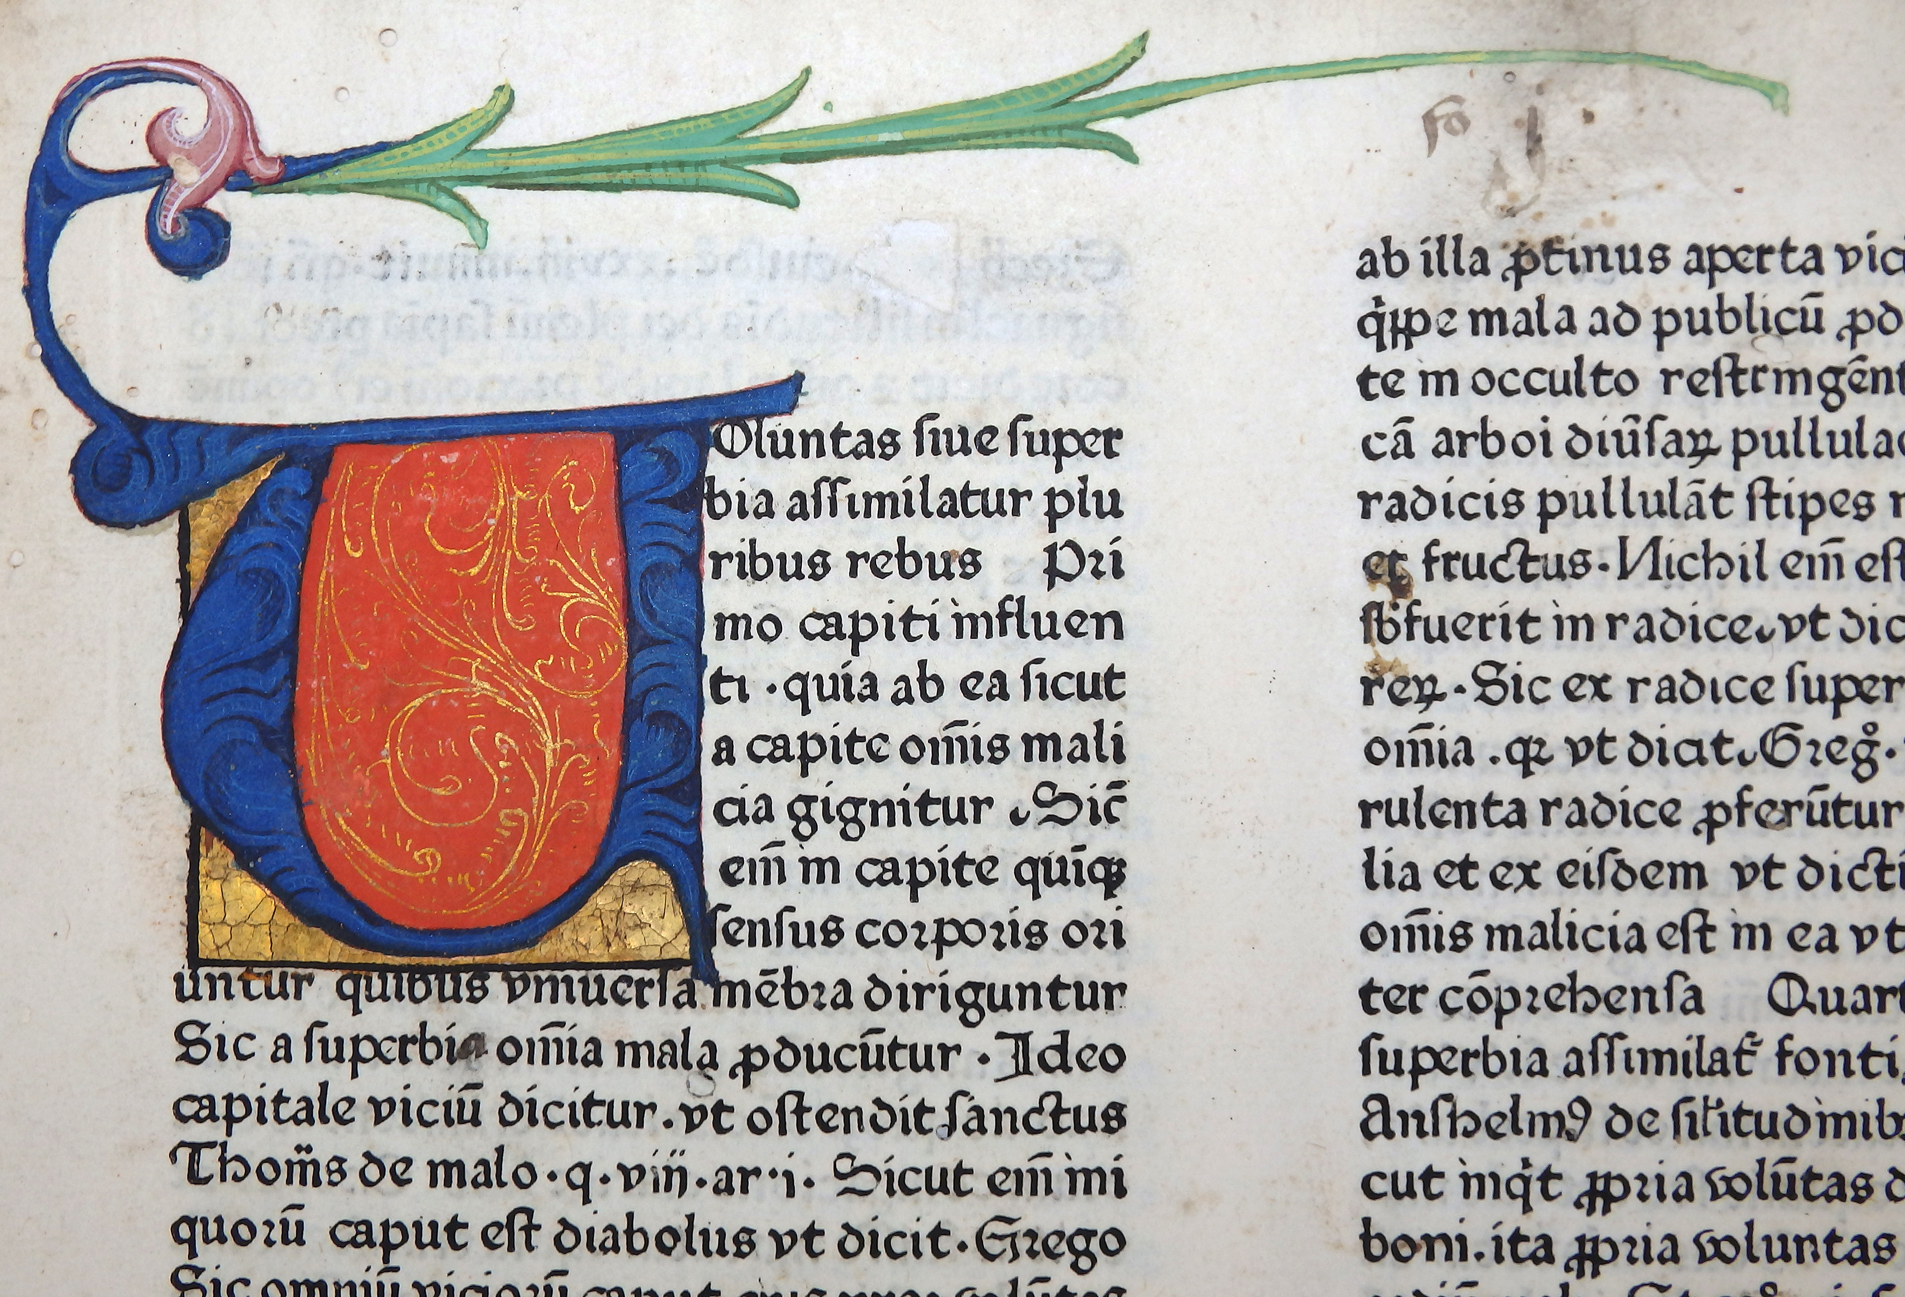 fo j
Voluntas siue super
bia assimilatur plu
ribus rebus Pri
mo capiti influen
ti · quia ab ea sicut
a capite om̄is mali
cia gignitur . Sic̄
em̄ in capite quīqꝫ
sensus corporis ori
untur quibus vniuersa mēbra diriguntur
Sic a superbia om̄ia mala ꝓducūtur · Ideo
capitale viciū dicitur . vt ostendit sanctus
Thom̄s de malo · q · viii · ar · i · Sicut em̄ ini
quorū caput est diabolus vt dicit · Grego
Sic omniū viciorū caput
ab illa ꝓtinus aperta vici
mala ad publicū ꝓd
te in occulto restringēnt
cā arboi diūsaꝝ pullulac
radicis pullulāt stipes r
et fructus · Nichil em̄ est
fuerit in radice . vt dic
reꝝ · Sic ex radice super
om̄ia . qꝛ vt dicit . Greg̊ ·
rulenta radice ꝓferūtur
lia et ex eisdem vt dicti
om̄is malicia est in ea vt
ter cōprehensa Quart
superbia assimilat᷑ fonti
Anshelmꝰ de sil̄itudinibꝫ
cut inq̇t ꝓpria volūtas d
boni . ita ꝓpria voluntas